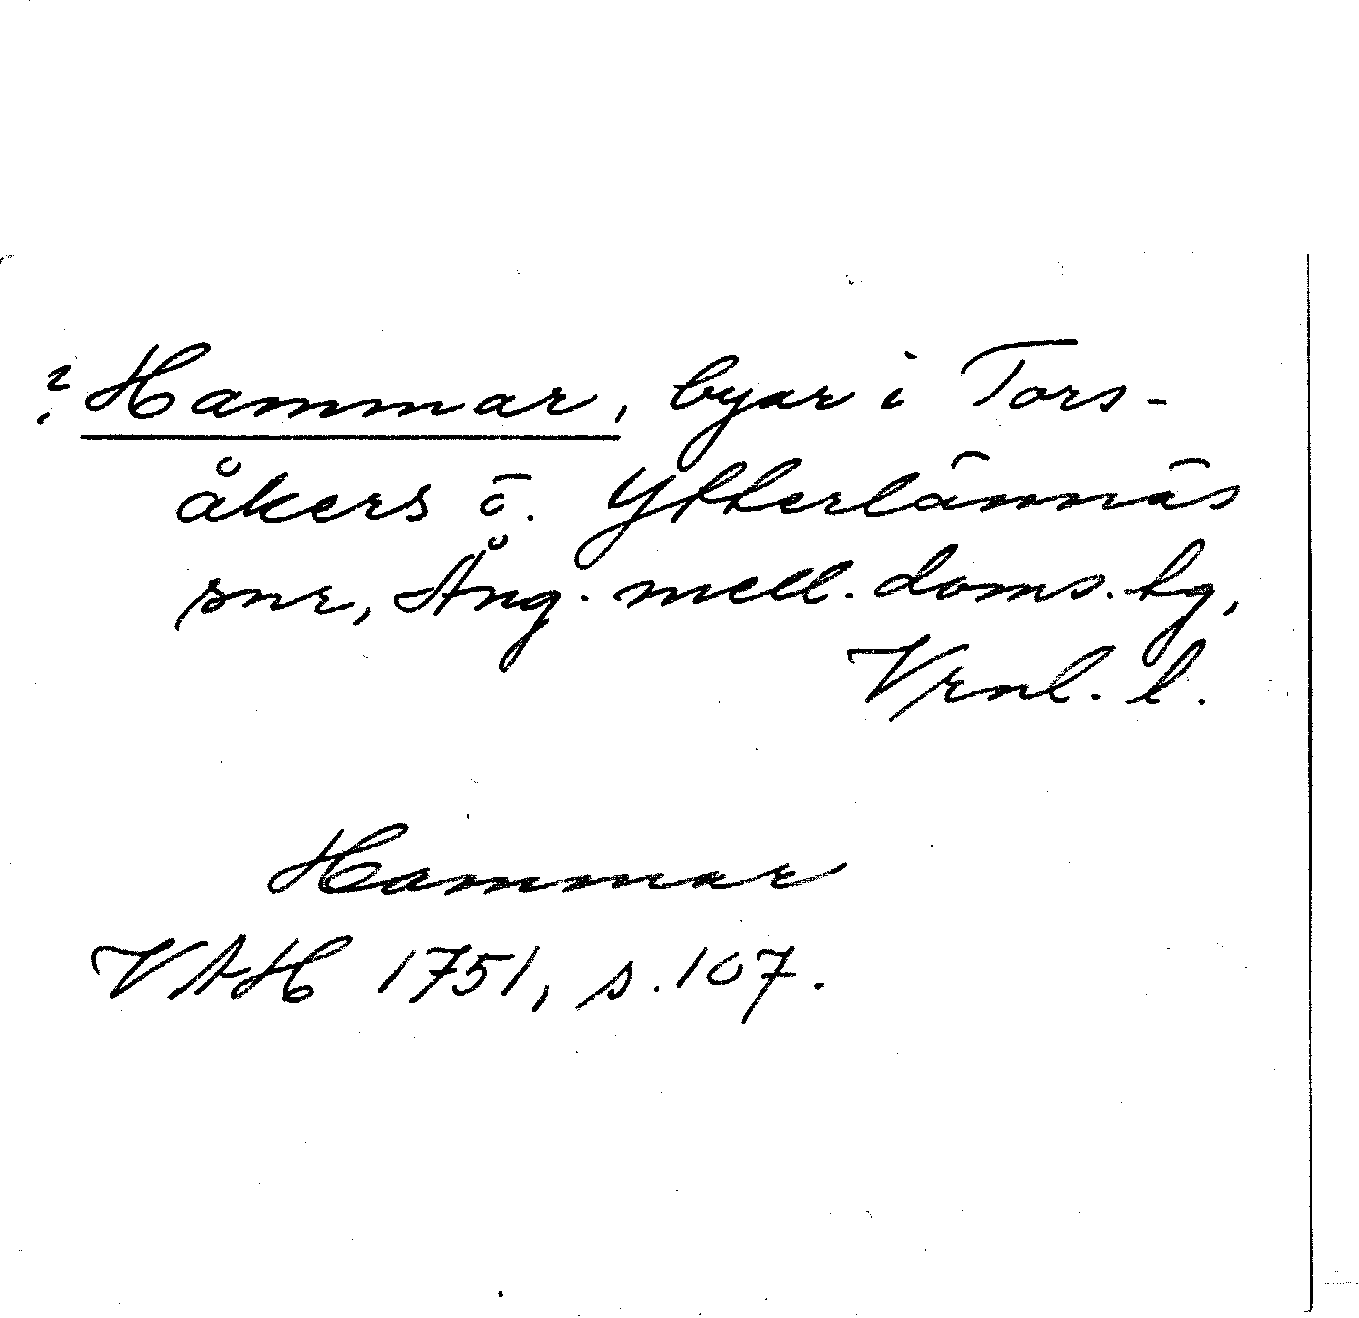 ? Hammar, byar i Tors-
åkers o. Ytterlännäs
snr, Ång. mell. doms. hg,
Vrnl. l.
Hammar
VAH 1751, s. 107.